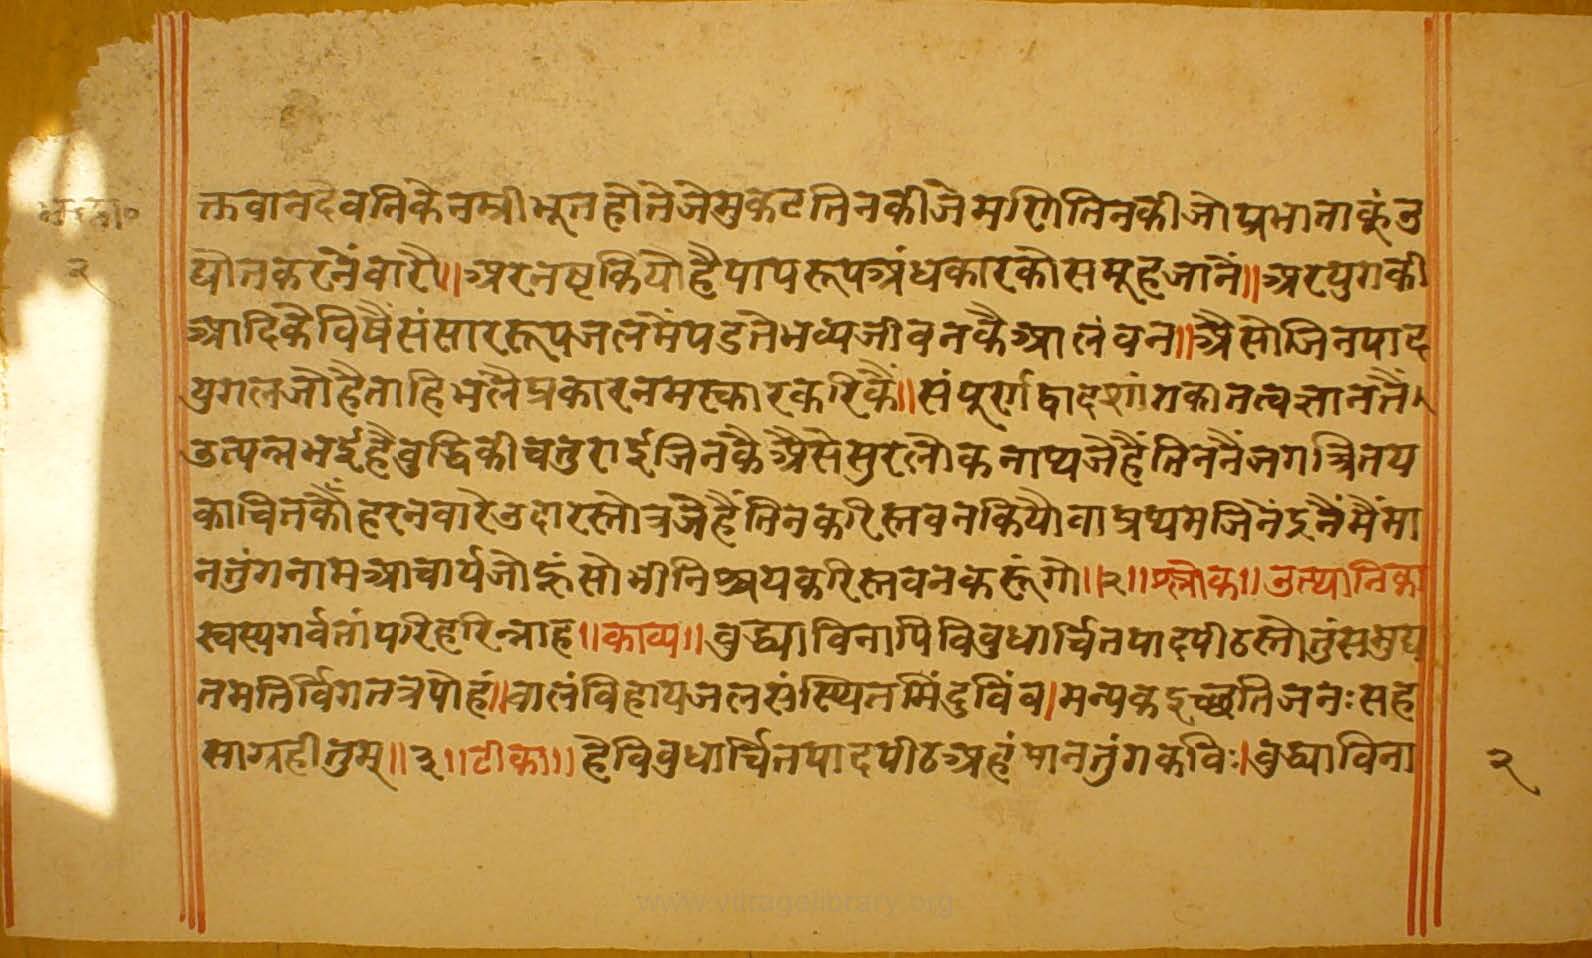 भ॰ भा॰
२
क्तवानदेवतिकेनम्रीभूतहोतेजेमुकटतिनकीजेमणितिनकीजोप्रभाताकूंउ
द्योतकरनेंवारौ॥अरनष्टकियौहैपापरूपअंधकारकोसमूहजानें॥अरयुगकी
आदिकेविषैंसंसाररूपजलमैंपडतेभव्यजीवनकैआलंवन॥अैसोजिनपाद
युगलजोहैताहिभलैप्रकारनमस्कारकरिकैं॥संपूर्णद्वादशांगकातत्वज्ञानतैं।
उत्पन्नभईहैवुद्धिकीचतुराईजिनकैअैसेसुरलोकनाथजेहैंतिननैंजगत्रितय
काचितकौंहरनवारेउदारस्तोत्रजेहैंतिनकरिस्तवनकियौवाप्रथमजिनेंद्रनैंमैंमा
नतुंगनामआचार्यजोहूंसोभीनिश्चयकरिस्तवनकरूंगो॥२॥श्लोक॥उत्थानिका
स्वस्यगर्वतांपरिहरिन्नाह॥काव्य॥वुद्ध्याविनापिविवुधार्चितपादपीठस्तोतुंसमुद्य
तमतिर्विगतत्रपोहं॥वालंविहायजलसंस्थितमिंदुविंव।मन्यकइच्छतिजनःसह
साग्रहीतुम्॥३॥टीका॥हेविवुधार्चितपादपीठअहंमानतुंगकविः।वुद्ध्याविना
२
www.viragelibrary.org